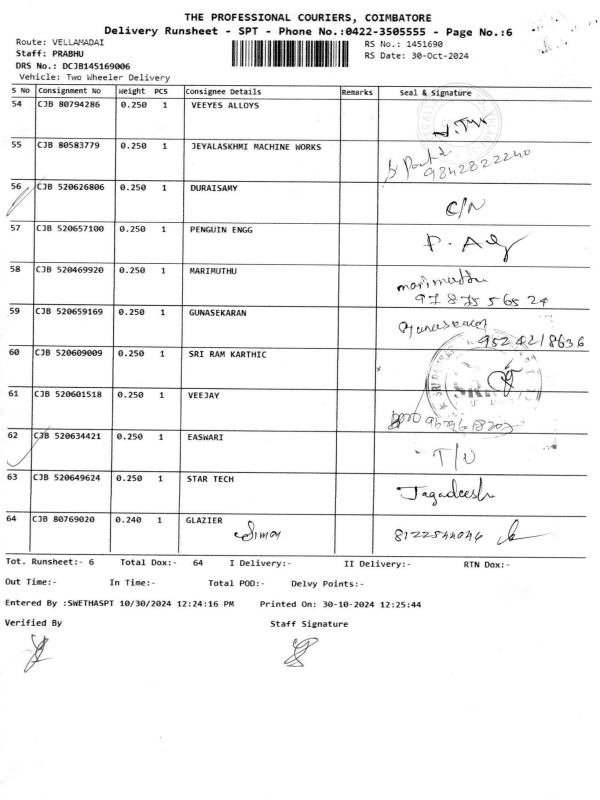 THE PROFESSIONAL COURIERS, COIMBATORE
Delivery Runsheet - SPT - Phone No.:0422-3505555 - Page No.:6
Route: VELLAMADAI RS No.: 1451690
Staff: PRABHU RS Date: 30-Oct-2024
DRS No.: DCJB145169006
Vehicle: Two Wheeler Delivery
S No Consignment No Weight PCS Consignee Details Remarks Seal & Signature
54 CJB 80794286 0.250 1 VEEYES ALLOYS
55 CJB 80583779 0.250 1 JEYALASKHMI MACHINE WORKS
9842822240
56 CJB 520626806 0.250 1 DURAISAMY
C/N
57 CJB 520657100 0.250 1 PENGUIN ENGG
58 CJB 520469920 0.250 1 MARIMUTHU
marimuthu
97875 565 24
59 CJB 520659169 0.250 1 GUNASEKARAN
Gunasekaran
952 421 8636
60 CJB 520609009 0.250 1 SRI RAM KARTHIC
61 CJB 520601518 0.250 1 VEEJAY
62 CJB 520634421 0.250 1 EASWARI
63 CJB 520649624 0.250 1 STAR TECH
Jagadeesh
64 CJB 80769020 0.240 1 GLAZIER
Simon
Tot. Runsheet:- 6 Total Dox:- 64 I Delivery:- II Delivery:- RTN Dox:-
Out Time:- In Time:- Total POD:- Delvy Points:-
Entered By :SWETHASPT 10/30/2024 12:24:16 PM Printed On: 30-10-2024 12:25:44
Verified By Staff Signature